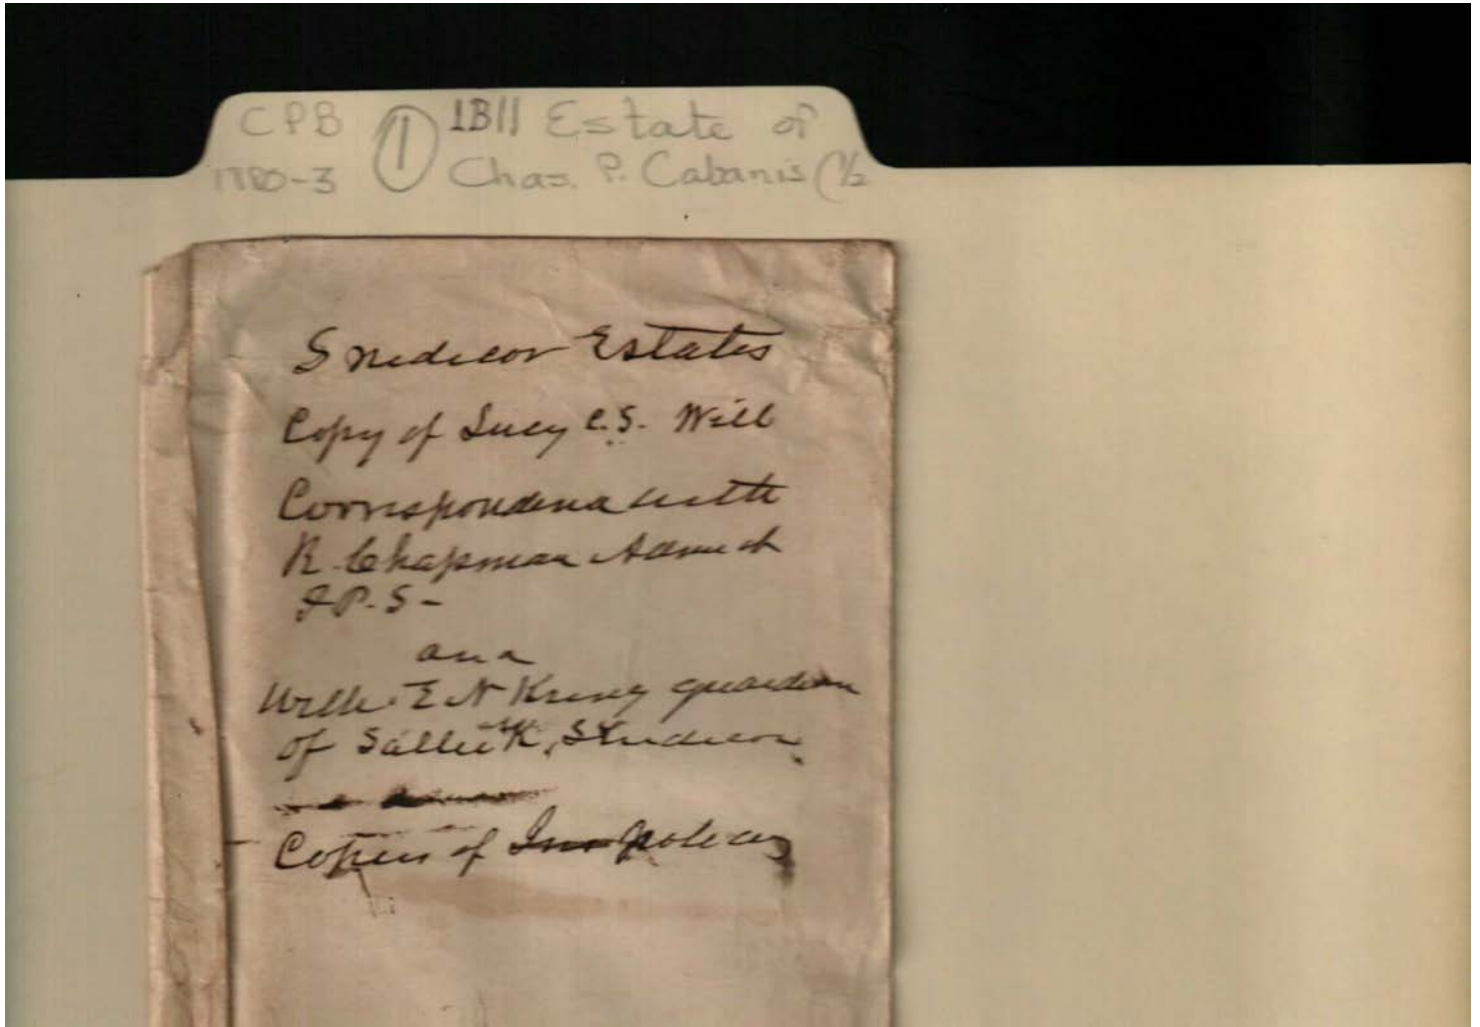 CPB ① 1B11 Estate of
1780-3 Chas. P. Cabanis (1/2
Snedecor Estates
Copy of Lucy C.S. Will
Correspondence with
R. Chapman Adm of
I.P.S-
and
With E N King guardian
of Sallie K. Snedecor
Copies of Ins policies